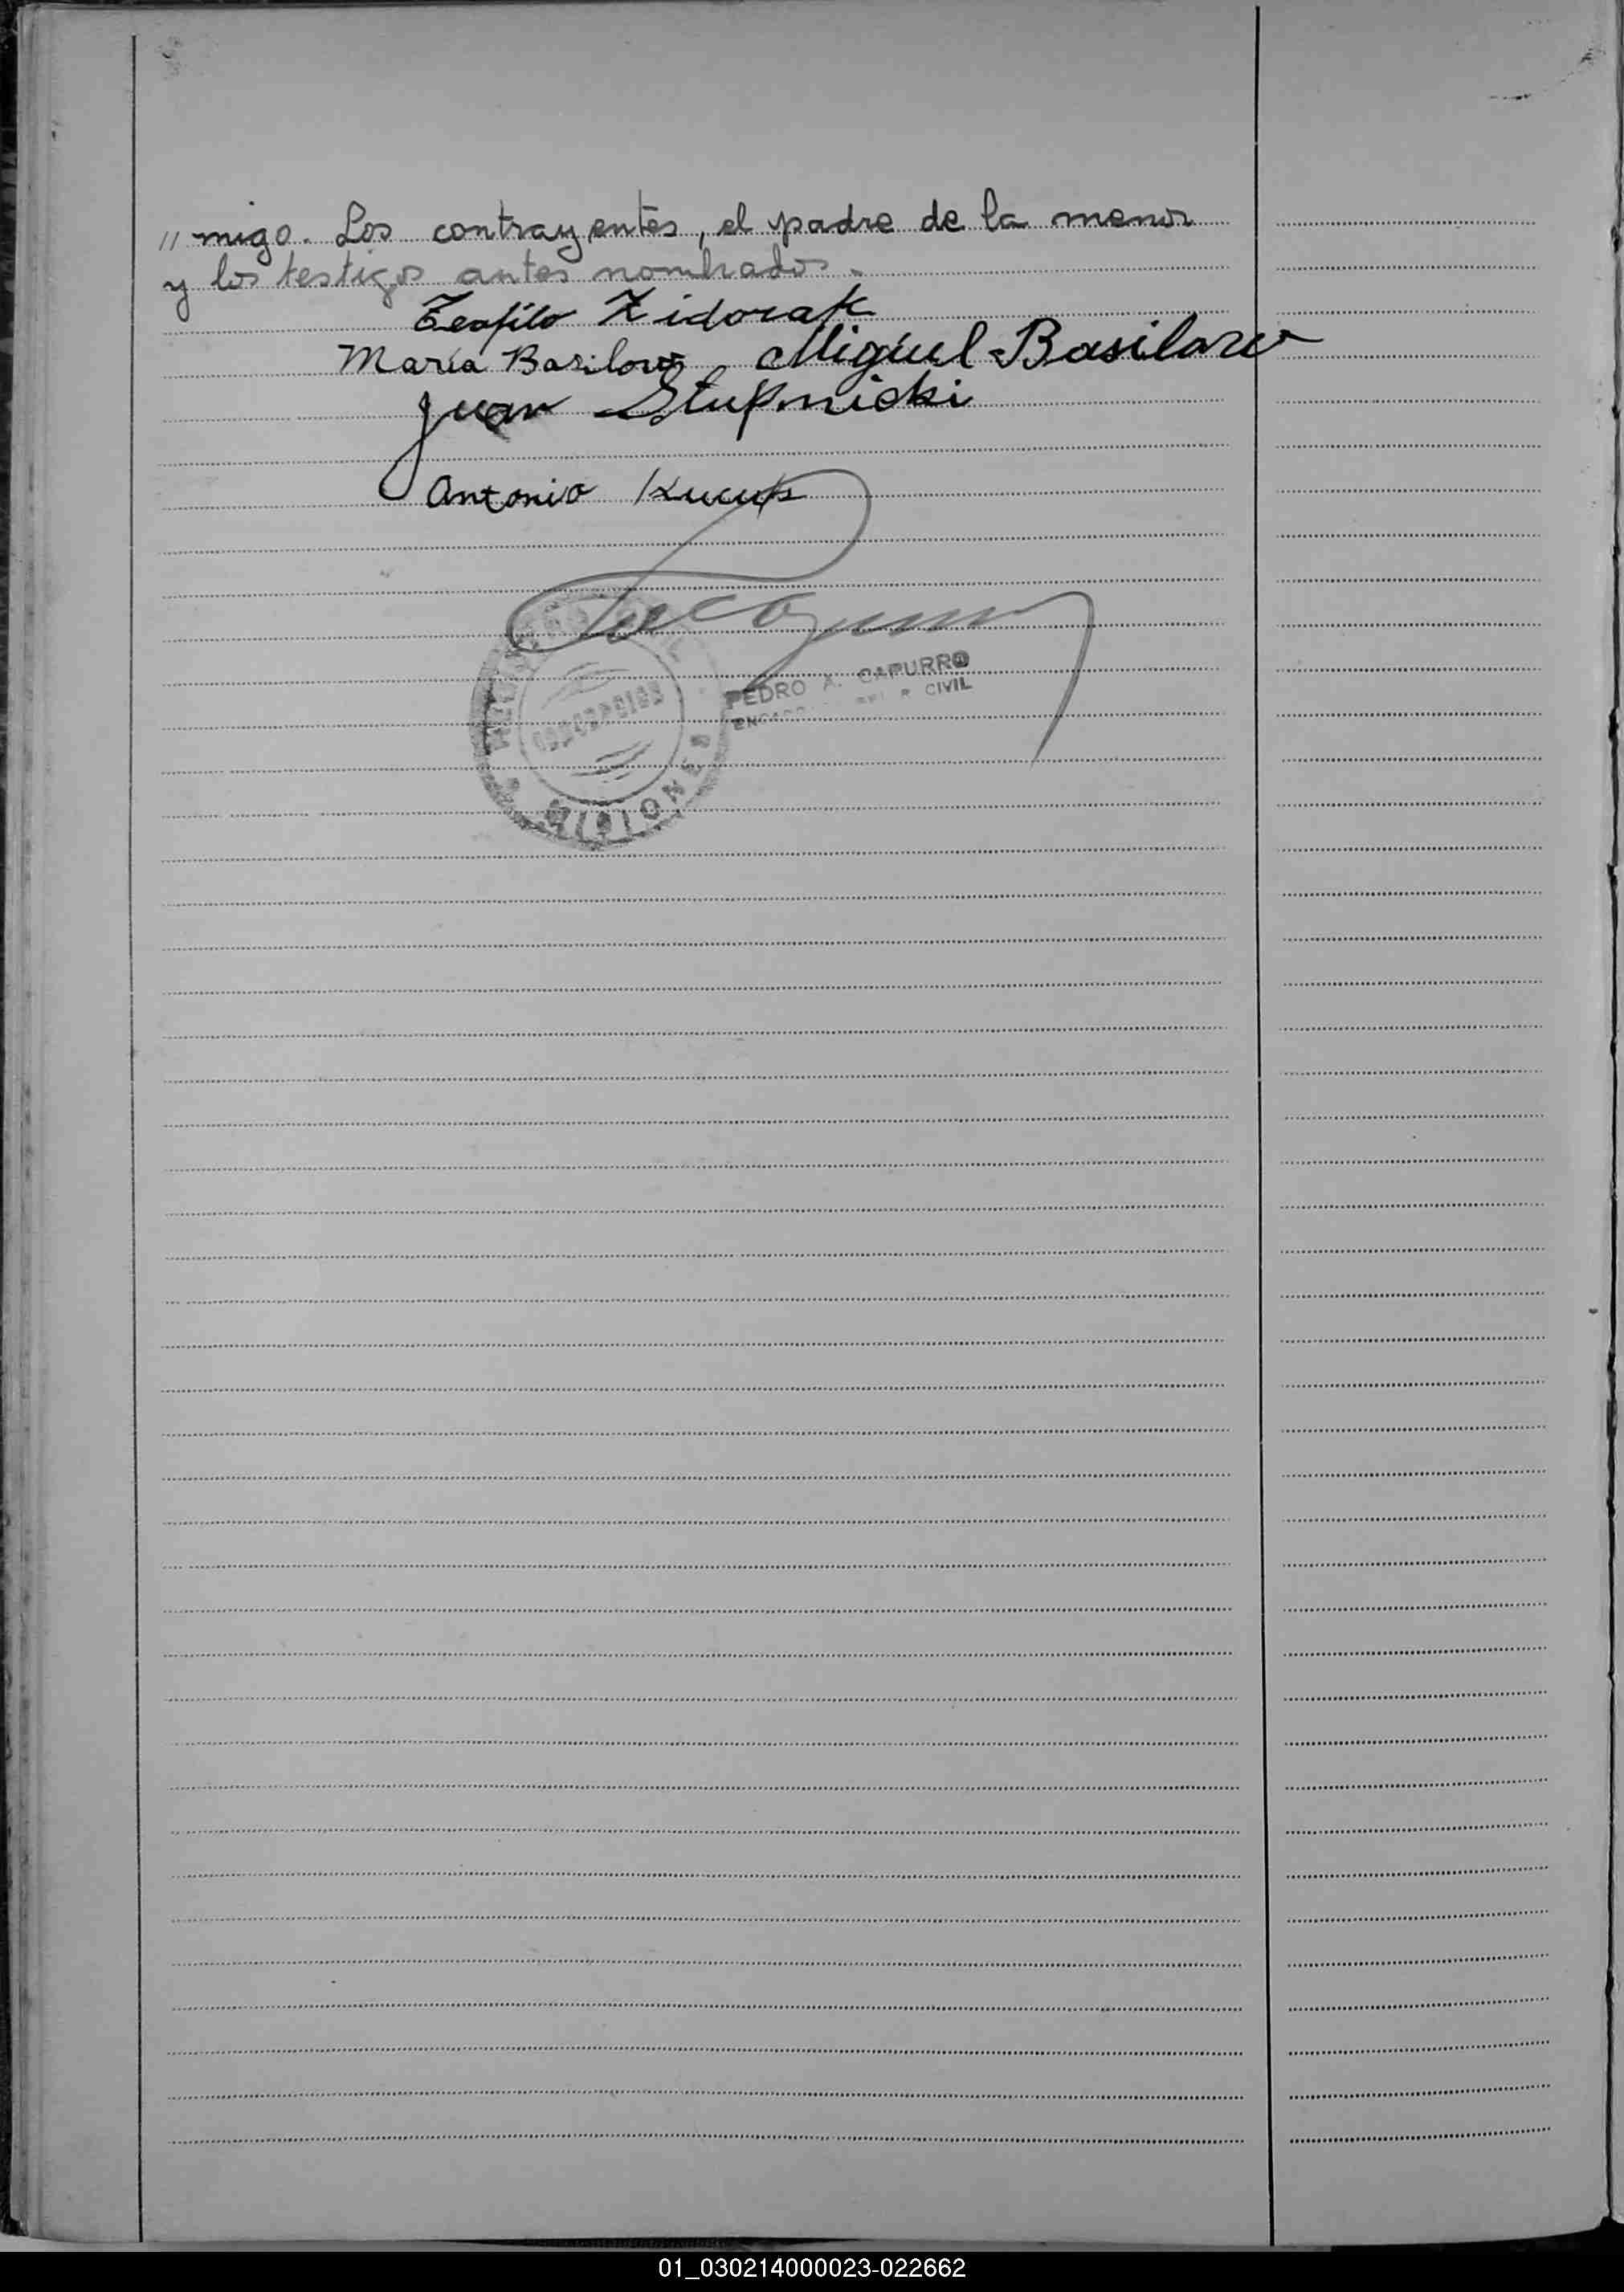 " migo. Los contrayentes, el padre de la menor
y los testigos antes nombrados.
Teofilo Zidorak
María Basilow Miguel Basilow
Juan Stupnicki
Antonio
PEDRO A. CAPURRO
CIVIL
CONCEPCION
MISIONES
01_030214000023-022662